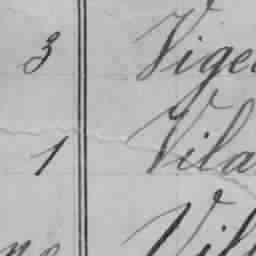 3 Vige
1 Vila
Vil